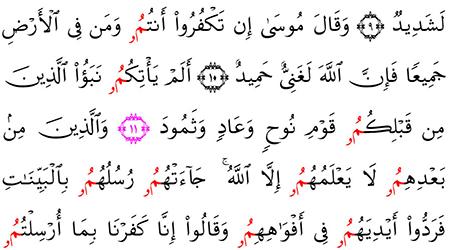 لَشَدِيدٌ ٩ وَقَالَ مُوسَىٰ إِن تَكْفُرُواْ أَنتُمُۥ وَمَن فِى ٱلْأَرْضِ
جَمِيعًا فَإِنَّ ٱللَّهَ لَغَنِىٌّ حَمِيدٌ ١٠ أَلَمْ يَأْتِكُمُۥ نَبَؤُاْ ٱلَّذِينَ
مِن قَبْلِكُمُۥ قَوْمِ نُوحٍ وَعَادٍ وَثَمُودَ ١١ وَٱلَّذِينَ مِنۢ
بَعْدِهِمُۥ لَا يَعْلَمُهُمُۥ إِلَّا ٱللَّهُ ۚ جَآءَتْهُمُۥ رُسُلُهُمُۥ بِٱلْبَيِّنَٰتِ
فَرَدُّواْ أَيْدِيَهُمُۥ فِى أَفْوَٰهِهِمُۥ وَقَالُواْ إِنَّا كَفَرْنَا بِمَا أُرْسِلْتُمُۥ